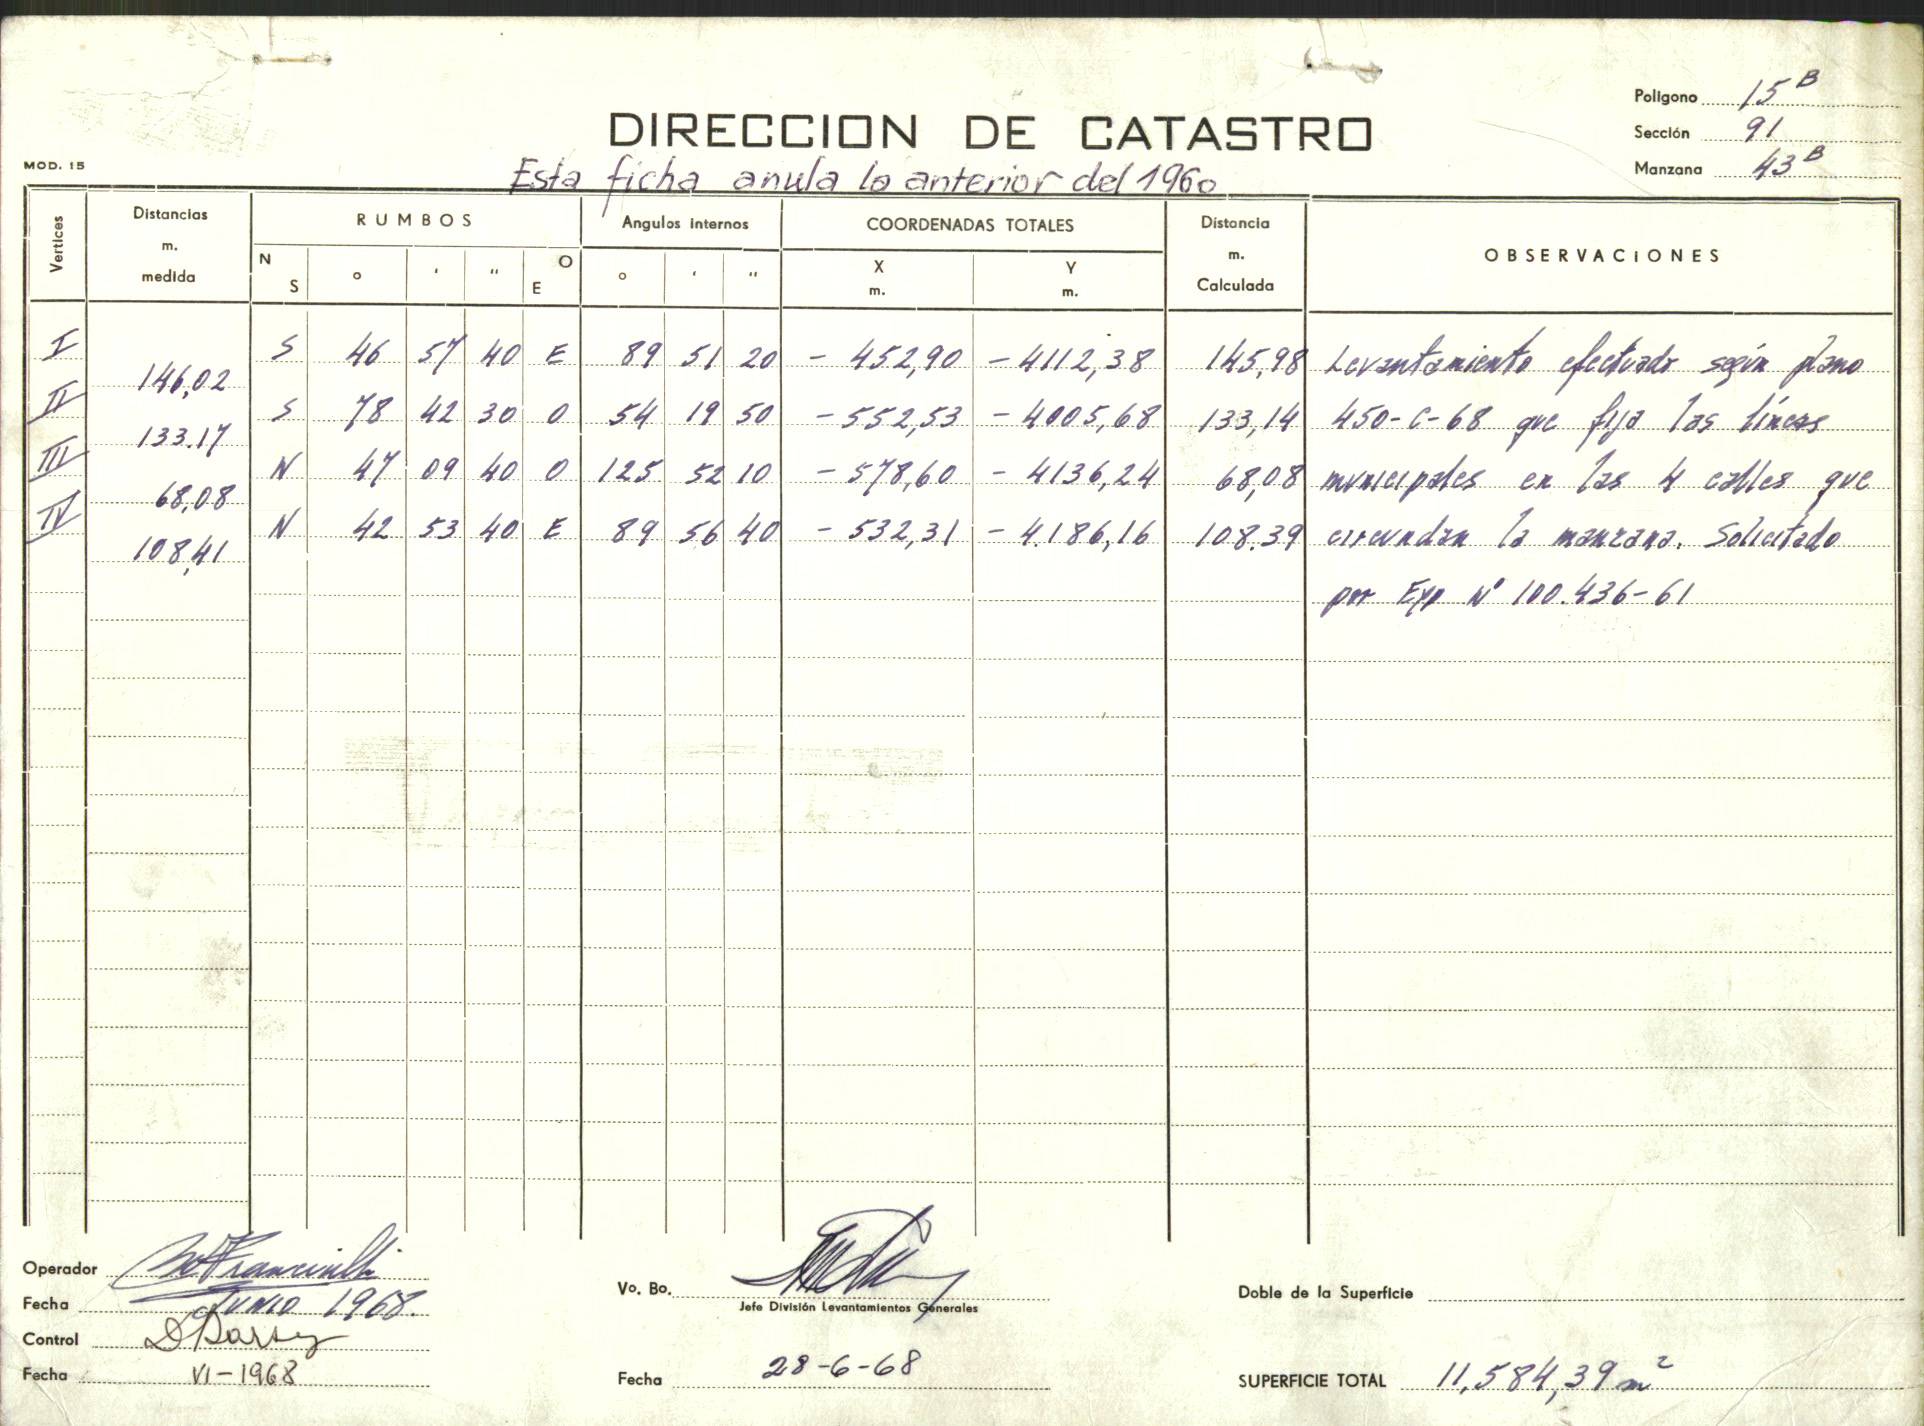 Poligono 15B
DIRECCION DE CATASTRO
Sección 91
MOD. 15
Manzana 43B
Esta ficha anula la anterior del 1960
Vertices Distancias m. medida RUMBOS Angulos internos COORDENADAS TOTALES Distancia m. Calculada OBSERVACIONES
N S ° ' " O E ° ' " X m. Y m.
I S 46 57 40 E 89 51 20 - 452,90 - 4112,38 145,98 Levantamiento efectuado según plano
146,02
II S 78 42 30 O 54 19 50 - 552,53 - 4005,68 133,14 450-C-68 que fija las líneas
133.17
III N 47 09 40 O 125 52 10 - 578,60 - 4136,24 68,08 municipales en las 4 calles que
68,08
IV N 42 53 40 E 89 56 40 - 532,31 - 4.186,16 108.39 circundan la manzana. Solicitado
108,41
por Exp N° 100.436-61
Operador
Fecha JUNIO 1968.
Control
Fecha VI-1968
Vo. Bo.
Jefe División Levantamientos Generales
Fecha 28-6-68
Doble de la Superficie
SUPERFICIE TOTAL 11,584,39 m²